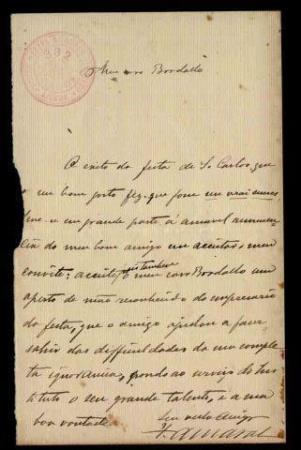 392
Meu caro Bordallo
O exito da festa de S. Carlos que
o seu bom gosto fez que fosse un vrai evene-
deve-o em grande parte á amavel annuen-
cia do meu bom amigo em acceitar o meu
convite; acceite, meu caro Bordallo um
aperto de mão reconhecido do emprezario
da festa, que o amigo ajudou a fazer
sahir das difficuldades da sua comple-
ta ignorancia, pondo ao serviço do Ins-
tituto o seu grande talento, e a sua
boa vontade.
Seu velho amigo
F. Amaral